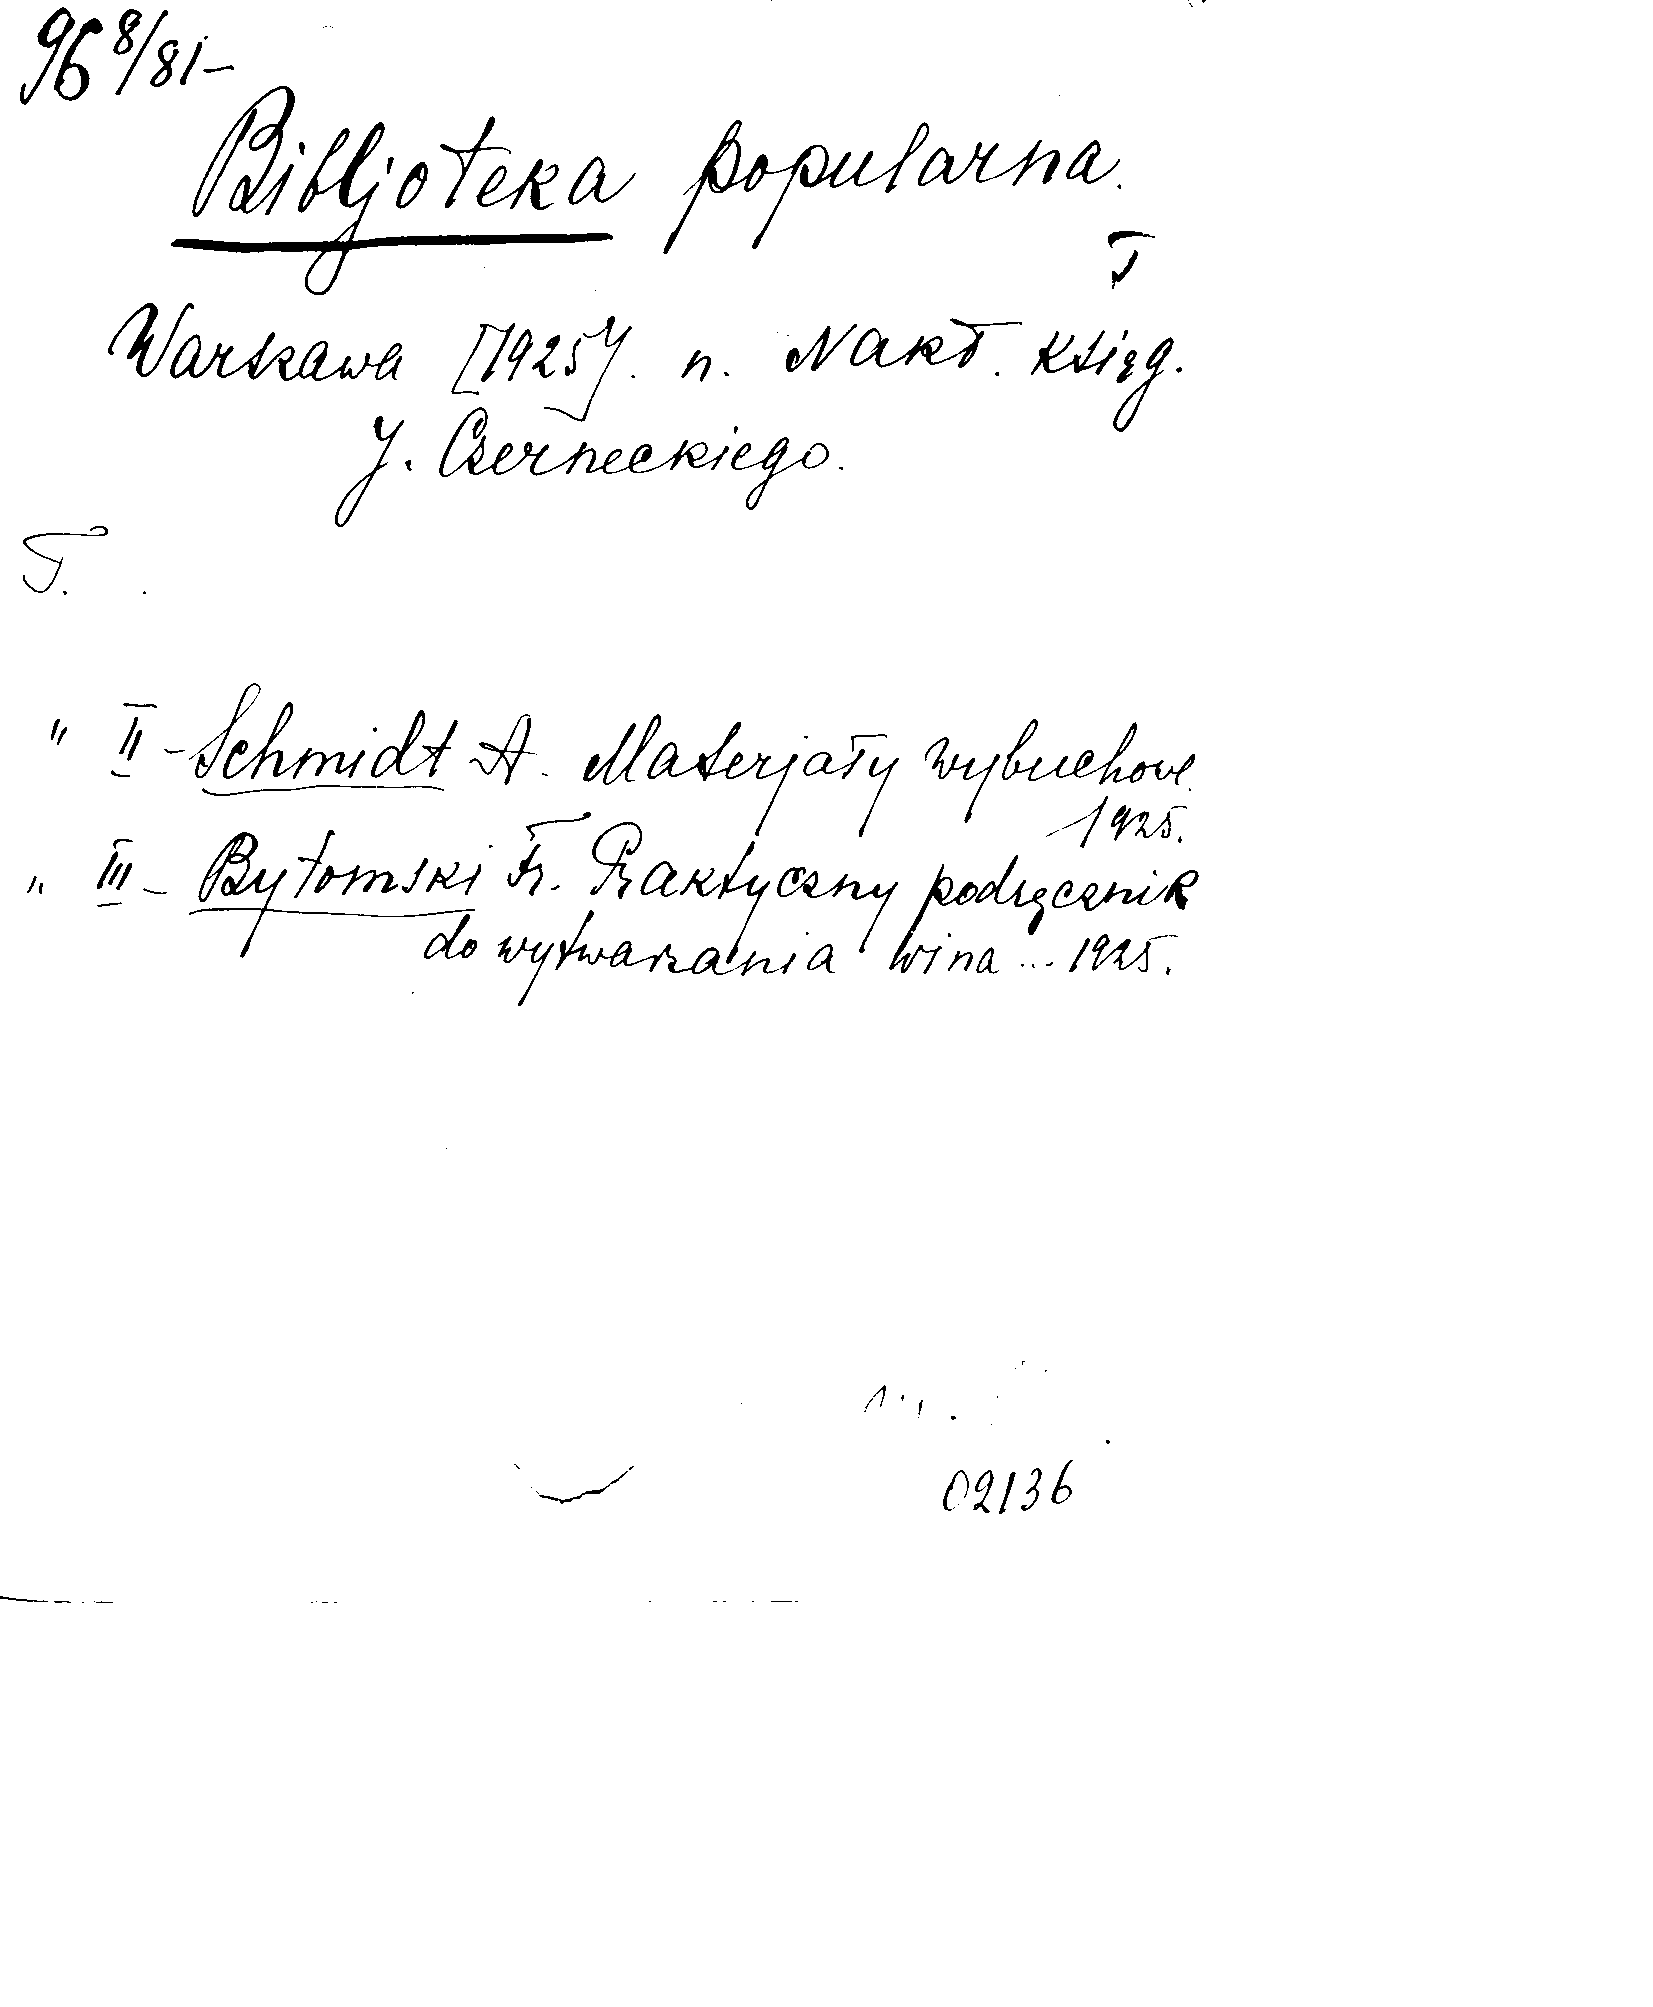 96 8/81-
Bibljoteka popularna.
T
Warszawa [1925]. n. Nakł. Księg.
J. Czerneckiego.
T.
" II - Schmidt A. Materjały wybuchowe
1925.
" III - Bytomski Fr. Praktyczny podręcznik
do wytwarzania wina ... 1925.
02136